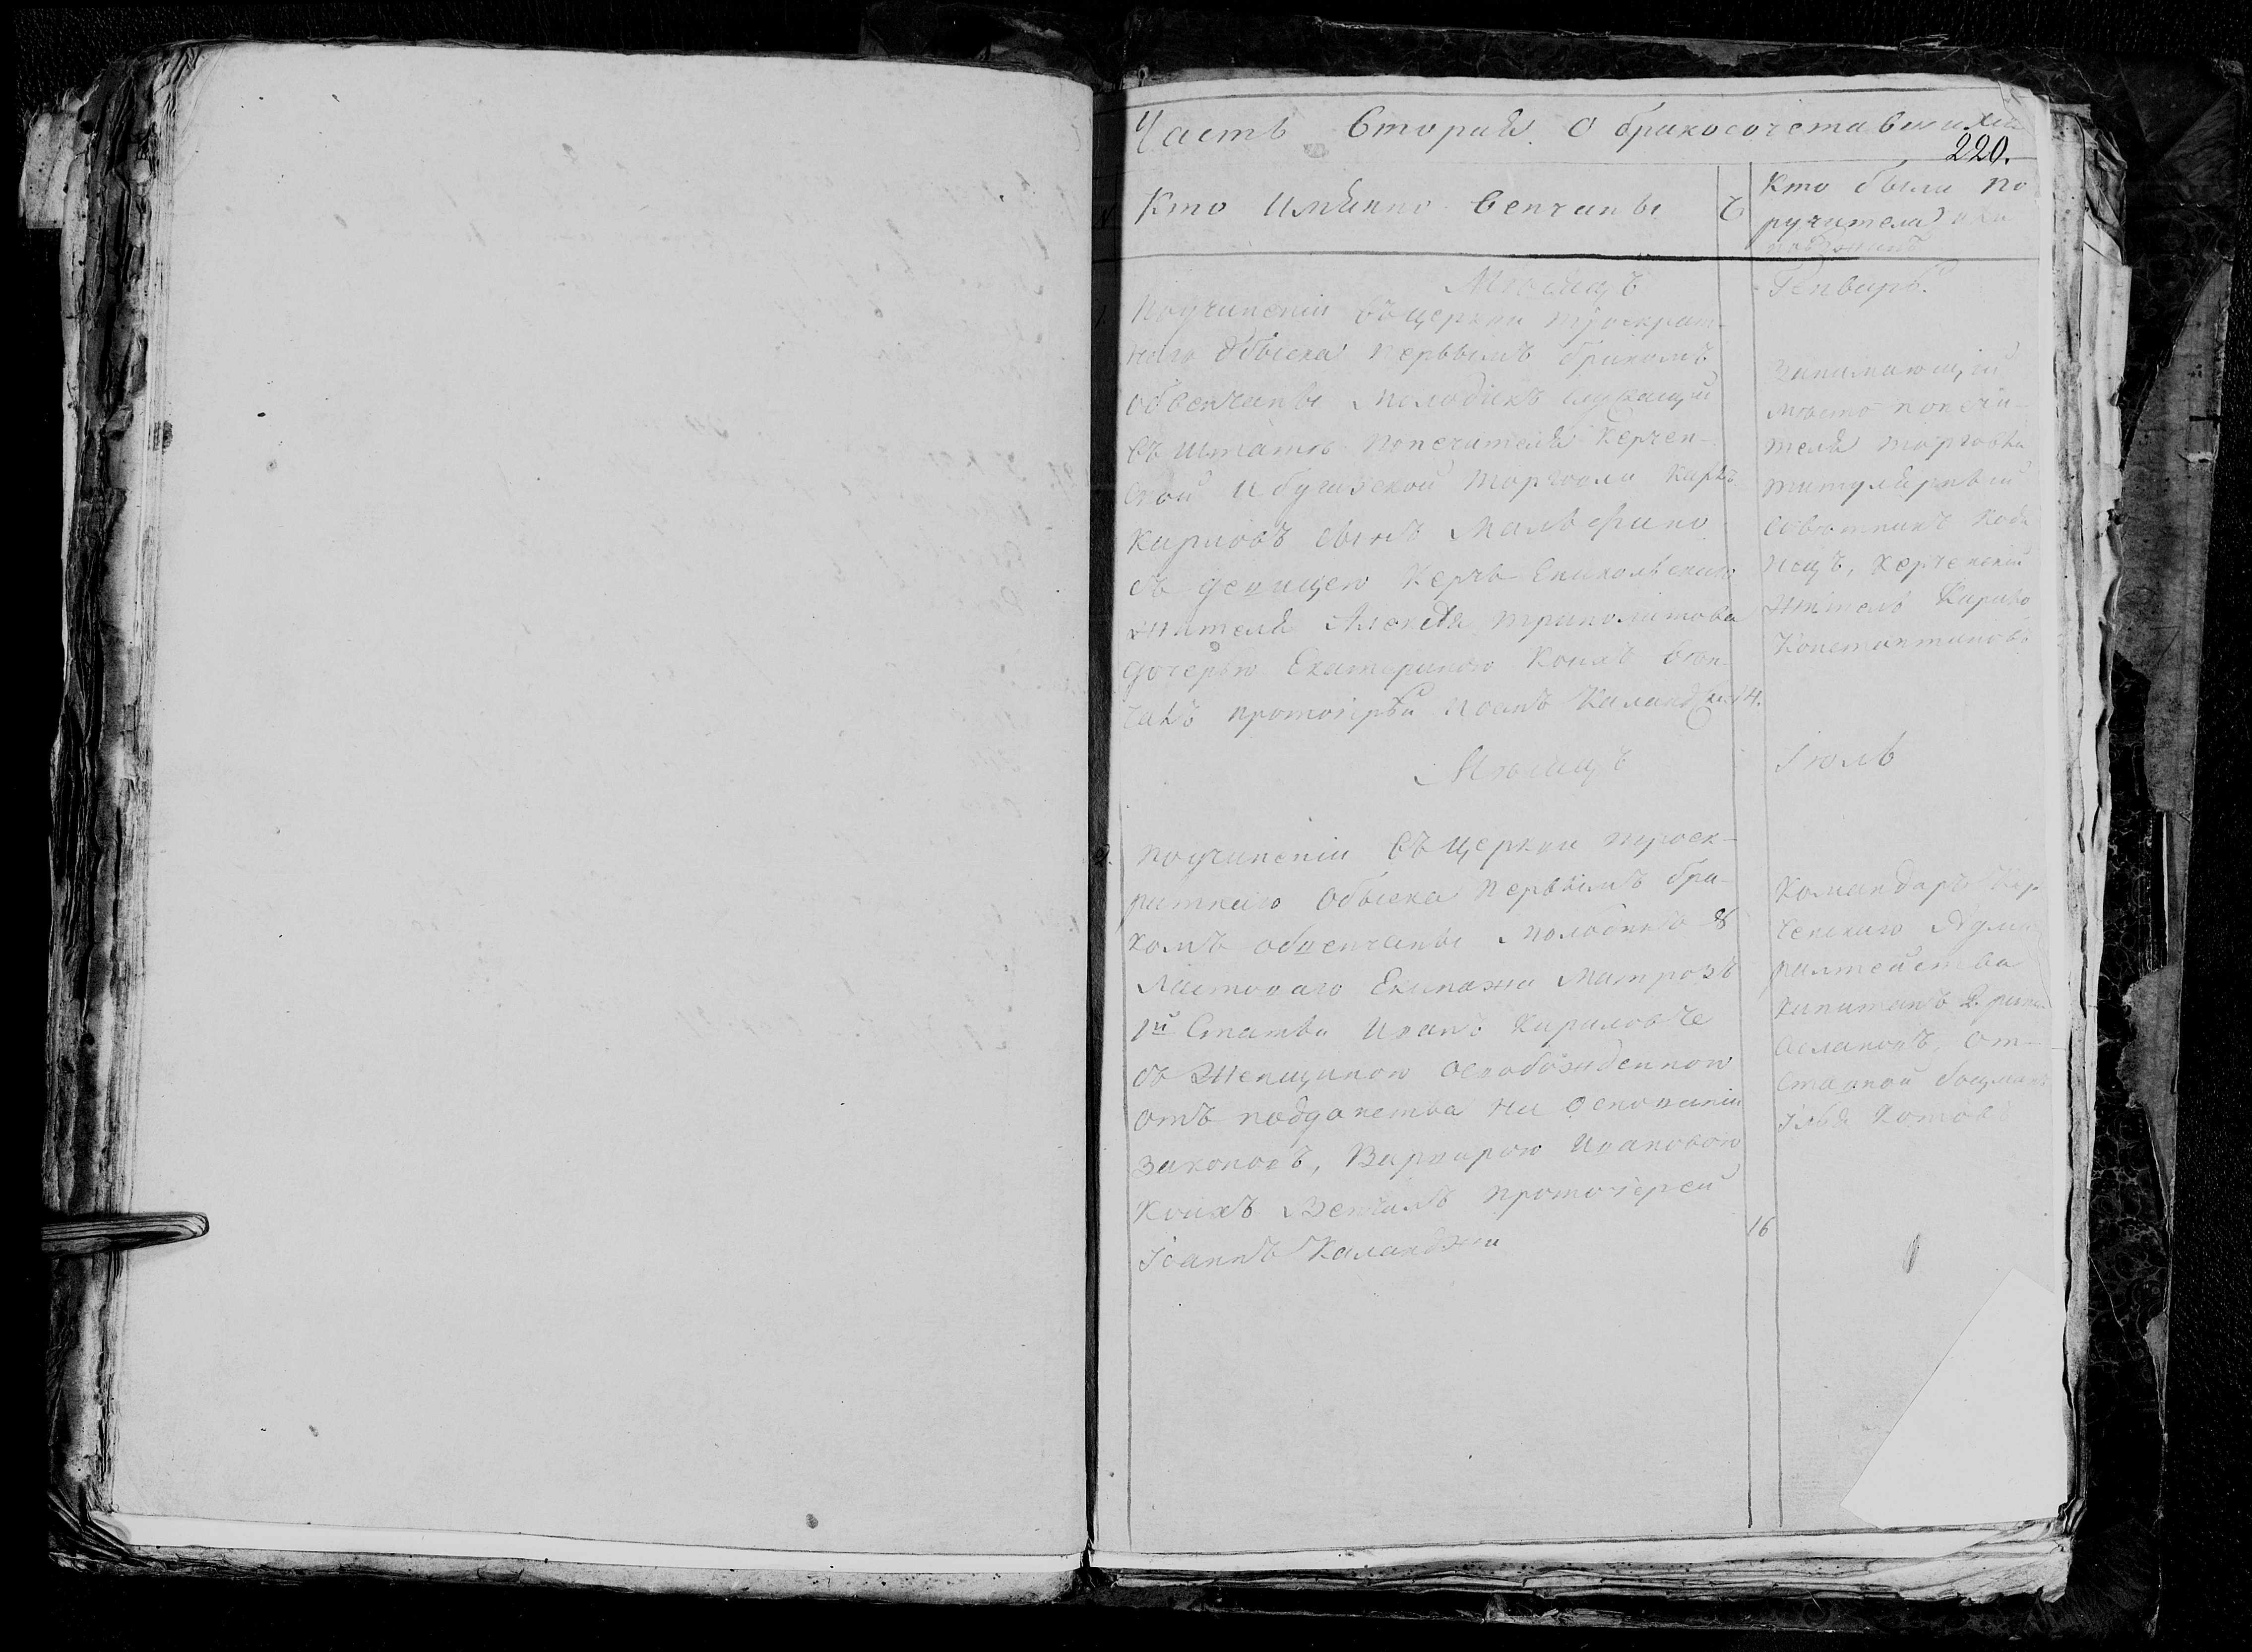 Часть Вторая О бракосочетавшихся
220.
Кто имянно венчаны
Ч
Кто были по
ручители
Мѣсяцъ
Генварь
1. По учинении въ церкви троекрат-
наго обыска первымъ бракомъ
обвенчаны молодикъ служащий
въ штатѣ попечителя Керчен-
ской и бугазской торговли Карлъ
Карловъ сынъ
съ девицею Керчь Еникольскаго
жителя Алексея Триполитова
дочерью Екатериною коихъ вѣн-
чалъ протоиерей Иоанъ Каланджи 14.
Занимающий
место попечи-
теля торговли
титулярный
советникъ
Керченский
житель
Константиновъ
Мѣсяцъ
Июль
2. По учинении въ церкви троек-
ратнаго обыска первымъ бра-
комъ обвенчаны молодикъ
Ластоваго Екипажа Матрозъ
1й Статьи Иванъ
съ женщиною освобожденною
отъ подданства на основании
законовъ, Варварою Ивановою
коихъ Венчалъ протоиерей
Iоаннъ Каланджи
16
Командиръ Кер
ченскаго Адми
ралтейства
капитанъ 2 ранга
от-
ставной боцманъ
Котовъ